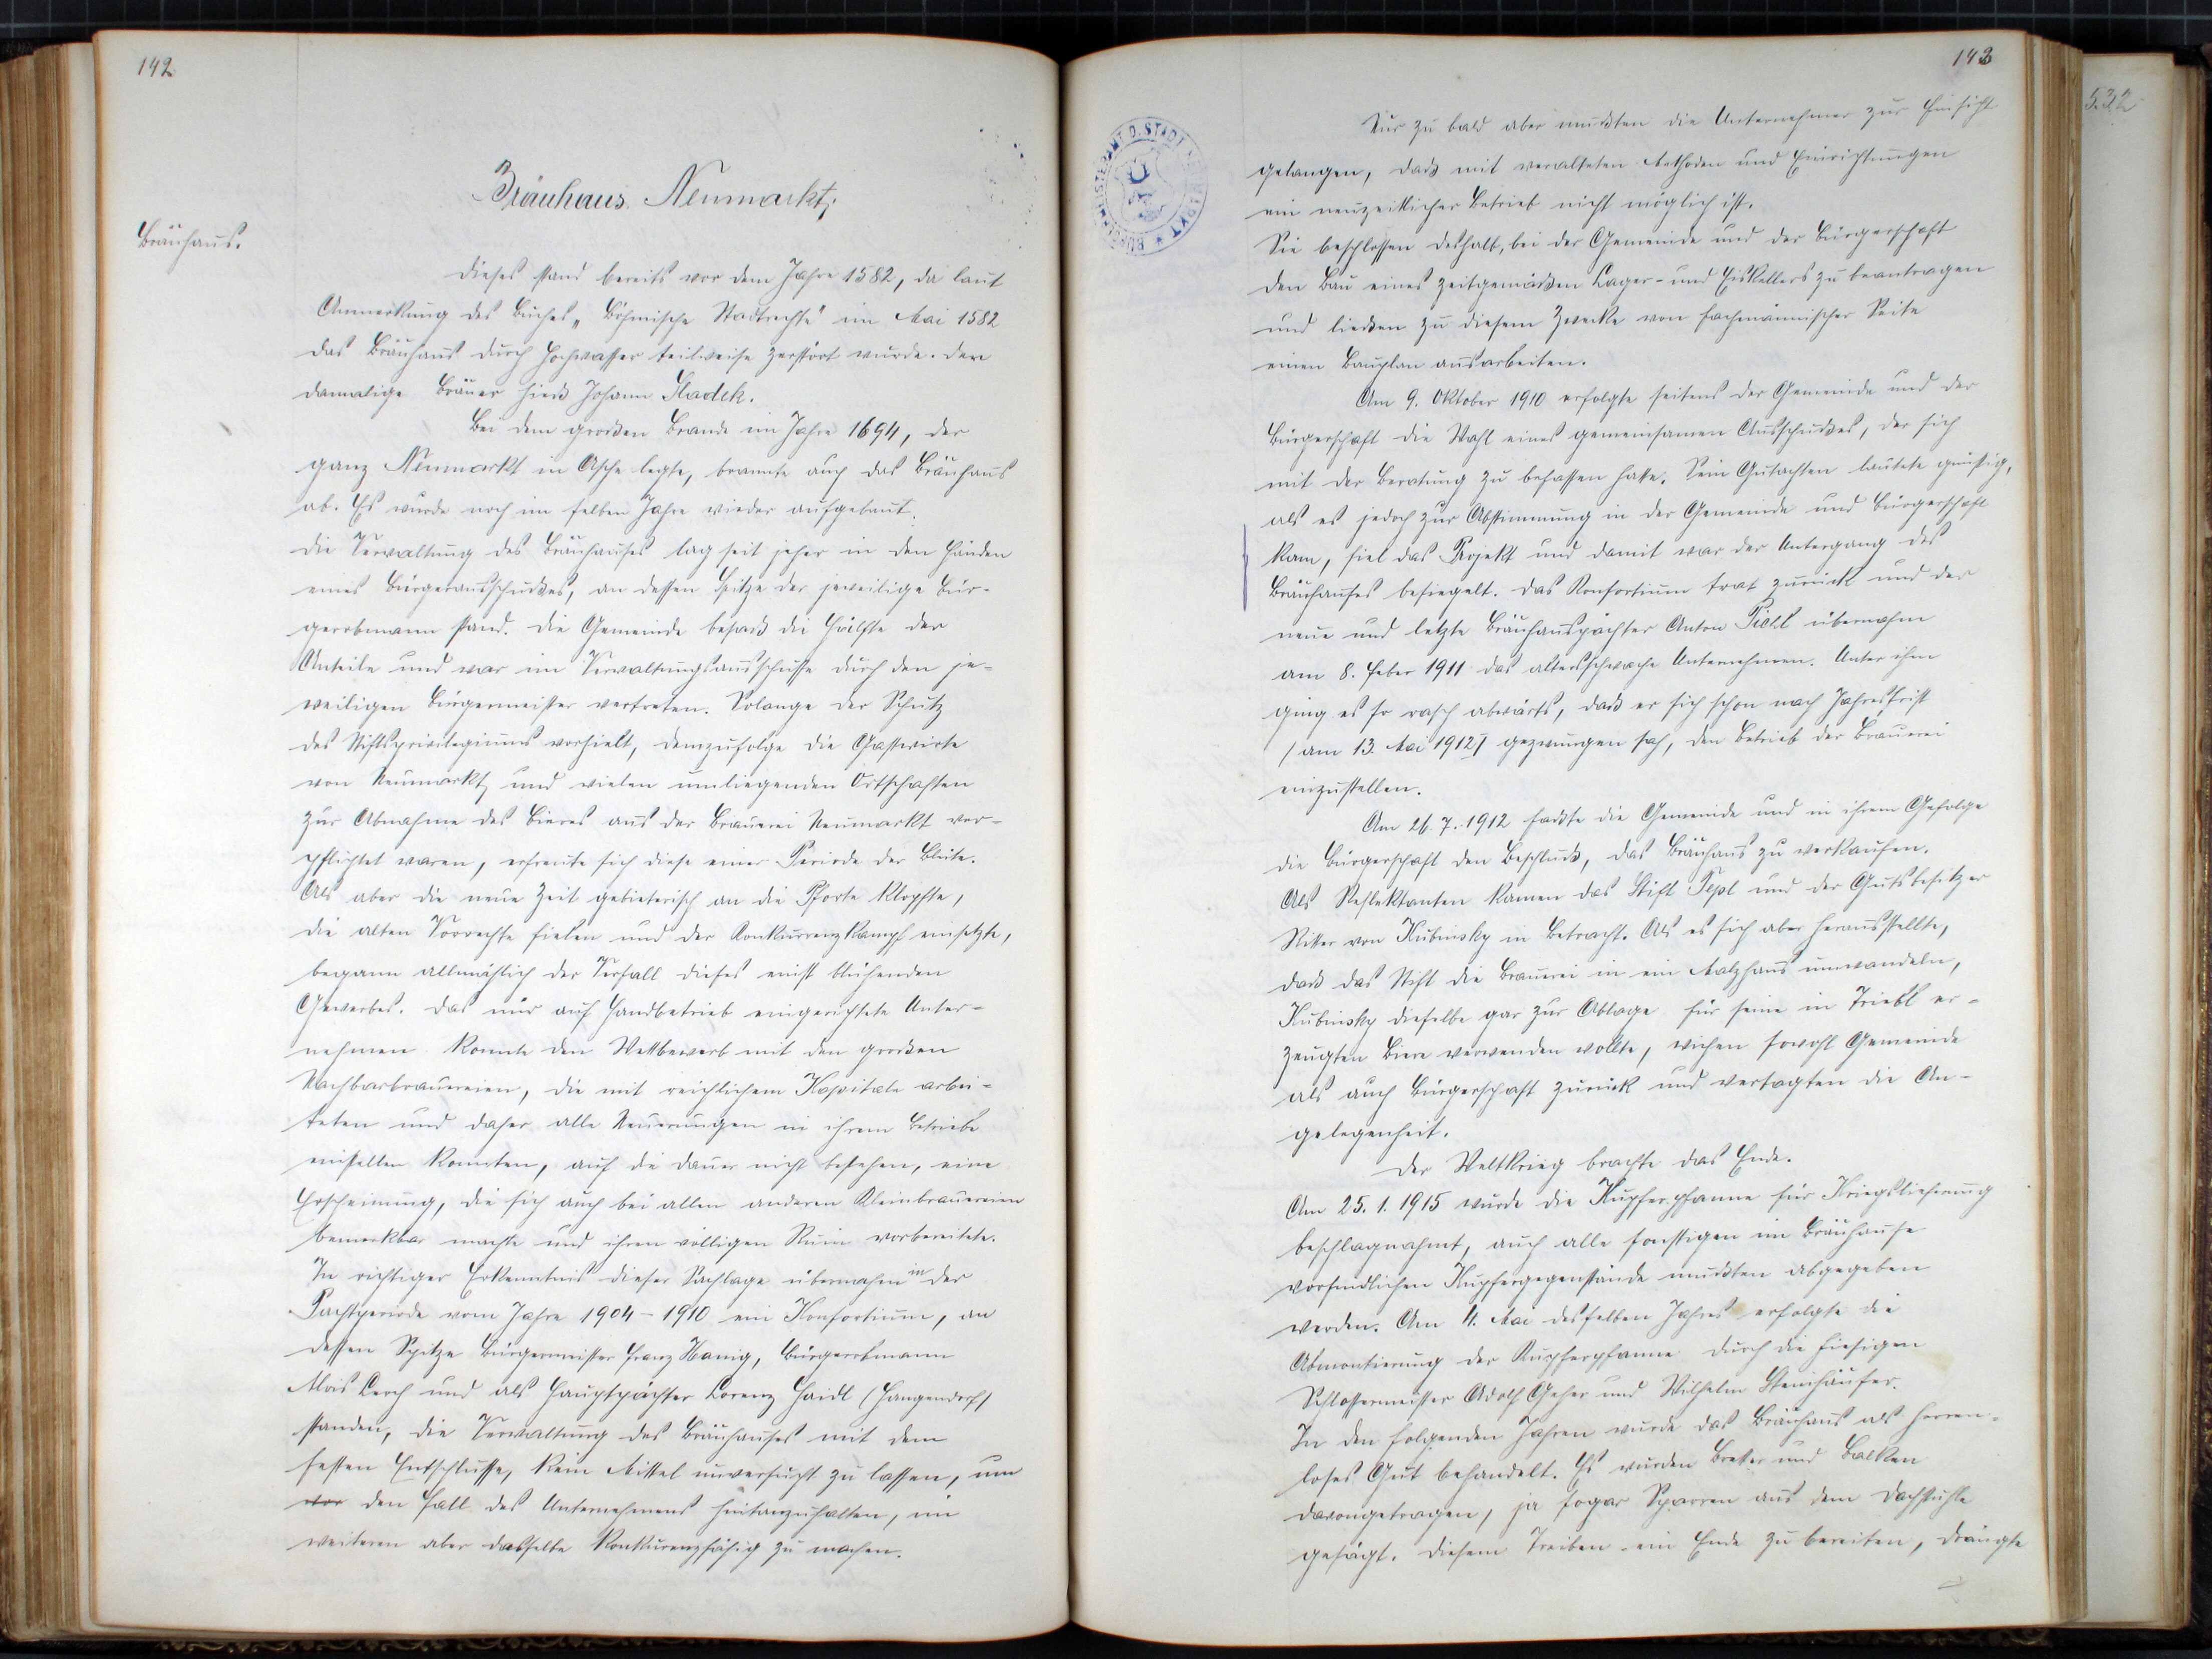 142
Bräuhaus Neumarkt,
Bräuhaus.
Dieses stand bereits vor dem Jahre 1582, da laut
Anmerkung des Buches „Böhmische Stadtrechte" im Mai 1582
das Bräuhaus durch Hochwasser teilweise zerstört wurde. Der
damalige Bräuer hieß Johann Sladek.
Bei dem großen Brande im Jahre 1694, der
ganz Neumarkt in Asche legte, brannte auch das Bräuhaus
ab. Es wurde noch im selben Jahre wieder aufgebaut.
Die Verwaltung des Bräuhauses lag seit jeher in den Händen
eines Bürgerausschußes, an dessen Spitze der jeweilige Bür-
gerobmann stand. Die Gemeinde besaß die Hälfte der
Anteile und war im Verwaltungsausschusse durch den je-
weiligen Bürgermeister vertreten. Solange der Schutz
des Stiftsprivilegiums vorhielt, demzufolge die Gastwirte
von Neumarkt und vielen umliegenden Ortschaften
zur Abnahme des Bieres aus der Brauerei Neumarkt ver-
pflichtet waren, erfreute sich diese einer Periode der Blüte.
Als aber die neue Zeit gebieterisch an die Pforte klopfte,
die alten Vorrechte fielen und der Konkurrenzkampf einsetzte,
begann allmählich der Verfall dieses einst blühenden
Gewerbes. Das nur auf Handbetrieb eingerichtete Unter-
nehmen konnte den Wettbewerb mit den großen
Nachbarbrauereien, die mit reichlichem Kapitale arbei-
teten und daher alle Neuerungen in ihrem Betriebe
einstellen konnten, auf die Dauer nicht bestehen, eine
Erscheinung, die sich auch bei allen anderen Kleinbrauereien
bemerkbar machte und ihren völligen Ruin vorbereitete.
In richtiger Erkenntnis dieser Sachlage übernahm in der
Pachtperiode vom Jahre 1904-1910 ein Konsortium, an
dessen Spitze Bürgermeister Franz Hanig, Bürgerobmann
Alois Lerch und als Hauptpächter Lorenz Haidl (Hangendorf)
standen, die Verwaltung des Bräuhauses mit dem
festen Entschlusse, kein Mittel unversucht zu lassen, um
vor den Fall des Unternehmens hintanzuhalten, im
weiteren aber dasselbe konkurenzfähig zu machen.
143
BÜRGERMEISTERAMT D. STADT NEUMARKT
Nur zu bald aber mußten die Unternehmer zur Einsicht
gelangen, daß mit veralteten Methoden und Einrichtungen
ein neuzeitlicher Betrieb nicht möglich ist.
Sie beschlossen deshalb, bei der Gemeinde und der Bürgerschaft
den Bau eines zeitgemäßen Lager- und Eiskellers zu beantragen
und ließen zu diesem Zwecke von fachmännischer Seite
einen Bauplan ausarbeiten.
Am 9. Oktober 1910 erfolgte seitens der Gemeinde und der
Bürgerschaft die Wahl eines gemeinsamen Ausschußes, der sich
mit der Beratung zu befassen hatte. Sein Gutachten lautete günstig,
als es jedoch zur Abstimmung in der Gemeinde und Bürgerschaft
kam, fiel das Projekt und damit war der Untergang des
Bräuhauses besiegelt. Das Konsortium trat zurück und der
neue und letzte Bräuhauspächter Anton Pichl übernahm
am 8. Feber 1911 das altersschwache Unternehmen. Unter ihm
ging es so rasch abwärts, daß er sich schon nach Jahresfrist
/am 13. Mai 1912/ gezwungen sah, den Betrieb der Brauerei
einzustellen.
Am 26. 7. 1912 faßte die Gemeinde und in ihrem Gefolge
die Bürgerschaft den Beschluß, das Bräuhaus zu verkaufen.
Als Reflektanten kamen das Stift Tepl und der Gutsbesitzer
Ritter von Kubinsky in Betracht. Als es sich aber herausstellte,
daß das Stift die Brauerei in ein Malzhaus umwandeln,
Kubinsky dieselbe gar zur Ablage für seine in Triebl er-
zeugten Biere verwenden wollte, wichen sowohl Gemeinde
als auch Bürgerschaft zurück und vertagten die An-
gelegenheit.
Der Weltkrieg brachte das Ende.
Am 25. 1. 1915 wurde die Kupferpfanne für Kriegslieferung
beschlagnahmt, auch alle sonstigen im Bräuhause
vorfindlichen Kupfergegenstände mußten abgegeben
werden. Am 4. Mai desselben Jahres erfolgte die
Abmontierung der Kupferpfanne durch die hiesigen
Schlossermeister Adolf Geher und Wilhelm Steinhäuser.
In den folgenden Jahren wurde das Bräuhaus als herren-
loses Gut behandelt. Es wurden Breter und Balken
davongetragen, ja sogar Sparren aus dem Dachstuhle
gesägt. Diesem Treiben ein Ende zu bereiten, drängte
532